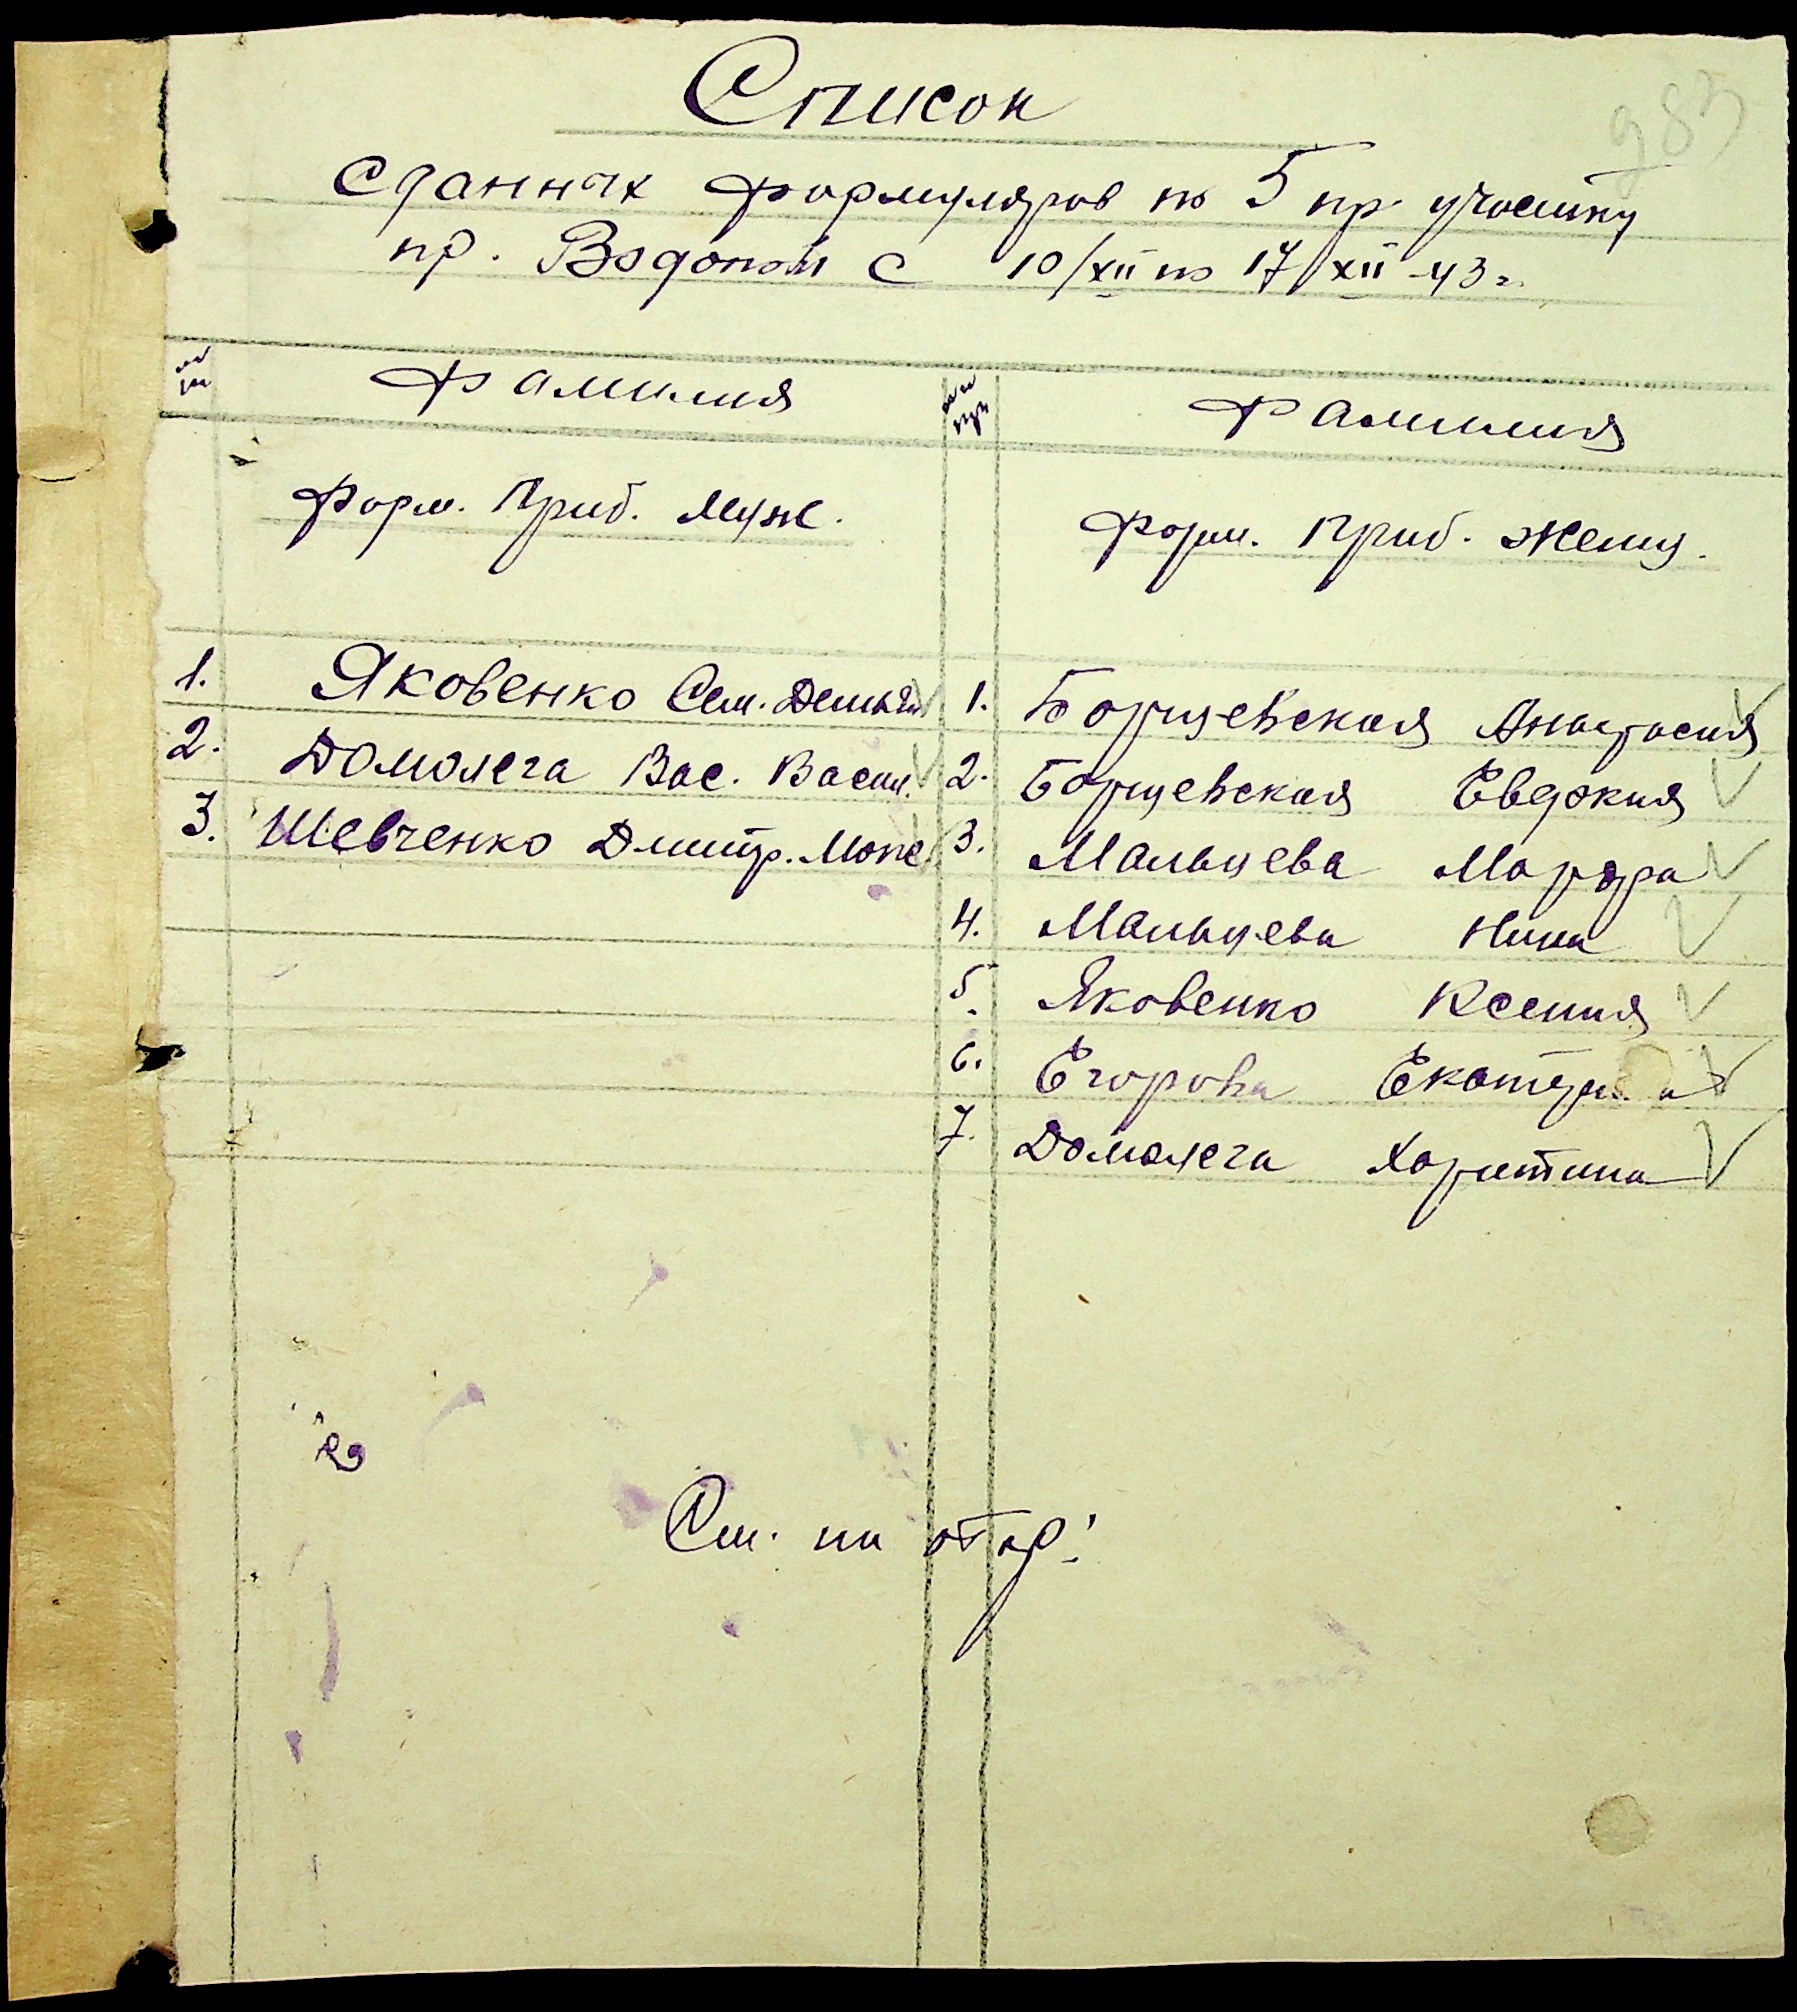 983
Список
сданных формуляров по 5 пр. участку
пр. Водопой с 10/XII по 17/XII-43 г.
Фамилия Фамилия
Форм. Приб. Муж. Форм. Приб. Женщ.
1. Яковенко Сем. 1. Борщевская Анастасия
2. Домолега Вас. Васил. 2. Борщевская Евдокия
3. Шевченко Дмитр. 3. Мальцева
4. Мальцева Нина
5. Яковенко Ксения
6. Егорова
7. Домолега Харитина
См. на обор!